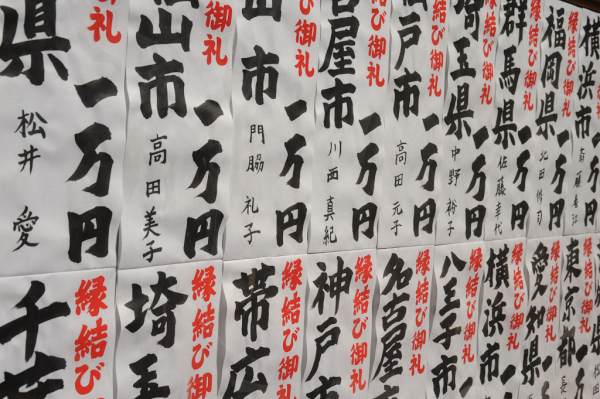 横浜市
一万円
縁結び御礼
福岡県
一万円
縁結び御礼
群馬県
一万円
佐藤幸代
結び御礼
埼玉県
一万円
中野裕子
縁結び御礼
戸市
一万円
高田元子
縁結び御礼
古屋市
一万円
川西真紀
結び御礼
山市
一万円
門脇礼子
び御礼
山市
一万円
高田美子
御礼
県
一万円
松井愛
縁結び御礼
東京都
縁結び御礼
愛知県
縁結び御礼
横浜市
縁結び御礼
八王子市
縁結び御礼
名古屋
縁結び御礼
神戸市
縁結び御礼
帯広
縁結び御礼
埼玉
縁結び
千葉